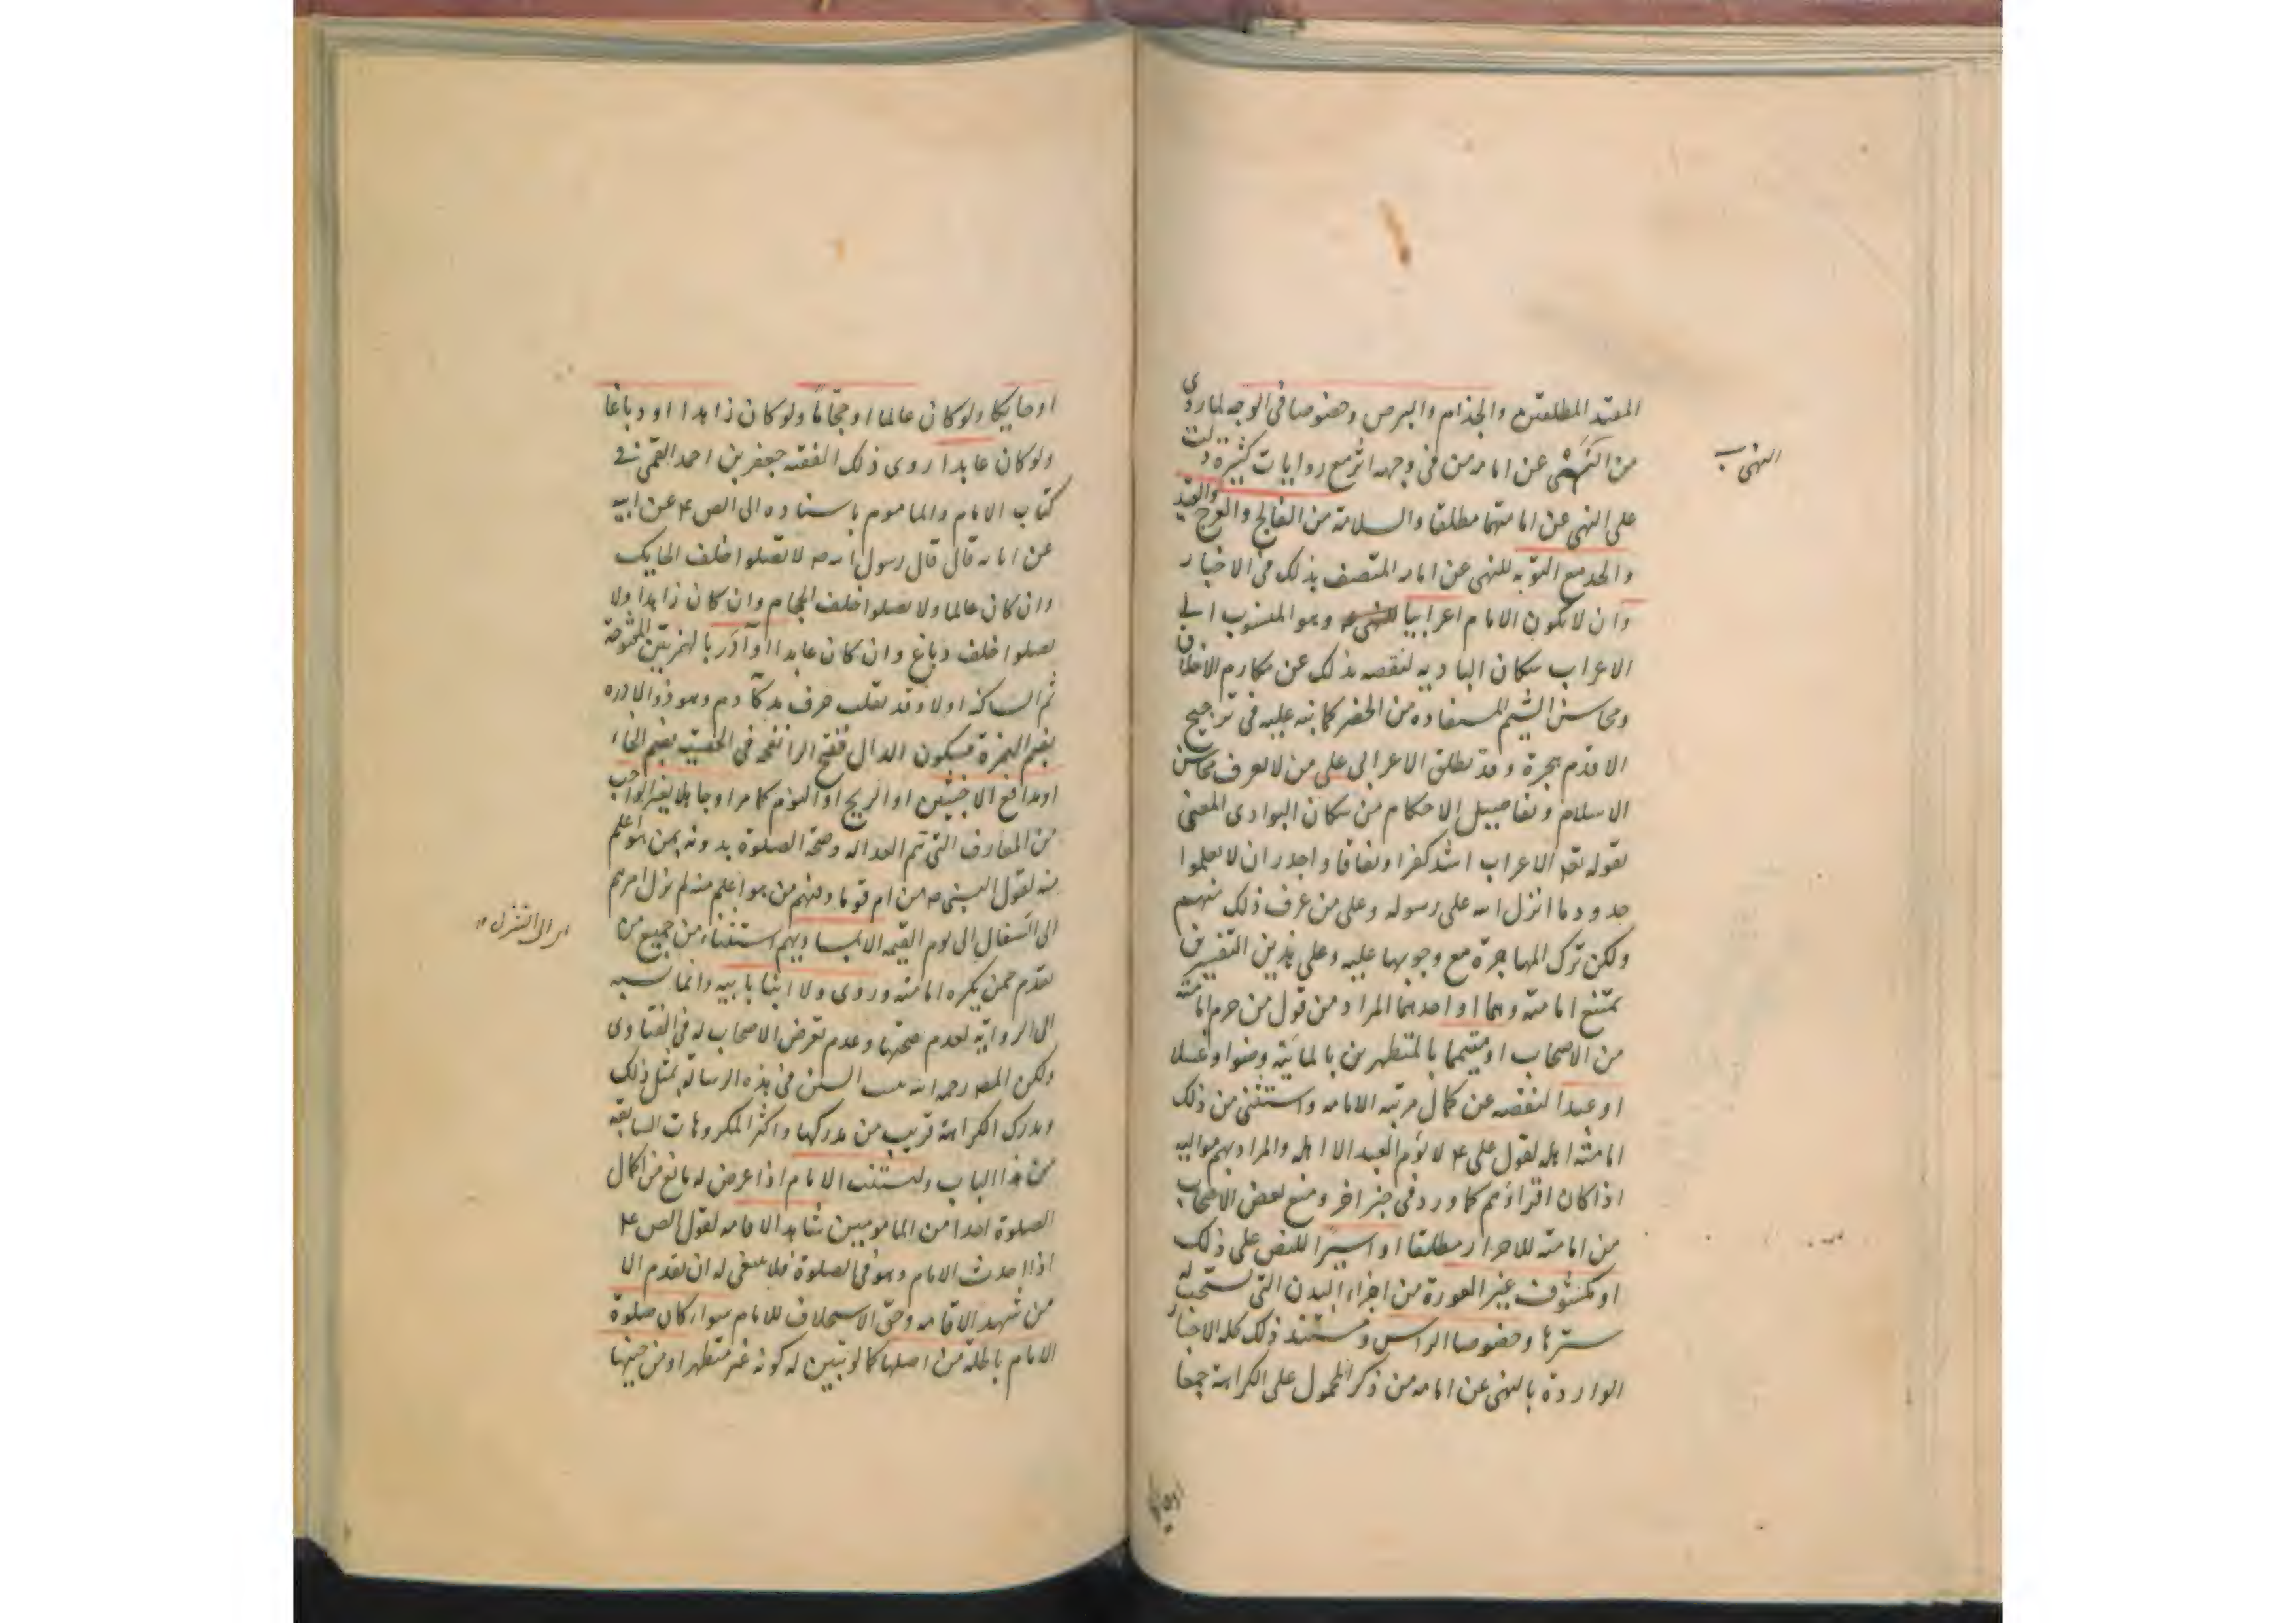 المقيد المطلقين والجذام والبرص وخصوصا فى الوجه لما روى
من النهى عن امامه من فى وجهه اثر مع روايات كثيرة دلت
على النهى عن امامتهما مطلقا والسلامة من الفالج والعرج والقيد
والحد مع التوبه للنهى عن امامه المتصف بذلك فى الاخبار
وان لا يكون الامام اعرابيا وهو المنسوب الى
الاعراب سكان الباديه لنقصه بذلك عن مكارم الاخلاق
ومحاسن الشيم المستفاده من الحضر كما نبه عليه فى ترجيح
الاقدم هجرة وقد يطلق الاعرابى على من لا يعرف محاسن
الاسلام وتفاصيل الاحكام من سكان البوادى المعنى
بقوله تعا الاعراب اشد كفرا ونفاقا واجدر ان لا يعلموا
حدود ما انزل الله على رسوله وعلى من عرف ذلك منهم
ولكن ترك المهاجرة مع وجوبها عليه وعلى هذين التفسيرين
يمتنع امامته وهما او احدهما المراد من قول من حرم امامته
من الاصحاب او متيمما بالمتطهرين بالمائية وضوا وغسلا
او عبدا لنقصه عن كمال مرتبه الامامه واستثنى من ذلك
امامته اهله لقول على ع لا يؤم العبد الا اهله والمراد بهم مواليه
اذا كان اقراؤهم كما ورد فى خبر اخر ومنع بعض الاصحاب
من امامته للاحرار مطلقا او اسيرا للنص على ذلك
او مكشوف غير العورة من اجزاء البدن التى يستحب له
سترها وخصوصا الراس ومستند ذلك كله الاخبار
الواردة بالنهى عن امامه من ذكر المحمول على الكراهة جمعا
النهى
اوحايكا ولو كان عالما او حجّاما ولو كان زاهدا او دباغا
ولو كان عابدا روى ذلك الفقيه جعفر بن احمد القمى فى
كتاب الامام والماموم باسناده الى الص ع عن ابيه
عن ابائه قال قال رسول الله ص لا تصلوا خلف الحايك
وان كان عالما ولا تصلوا خلف الحجام وان كان زاهدا ولا
تصلوا خلف دباغ وان كان عابدا او آدر بالهمزتين المفتوحة
ثم الساكنه اولا وقد تقلب حرف مد كآدم وهو ذو الادره
بضم الهمزة فسكون الدال ففتح الرا نفخه فى الخصيه بضم الخاا
او مدافع الاخبثين او الريح او النوم كما مر او جاهلا بغير الواجب
من المعارف التى تتم العداله وصحة الصلوة بدونه بمن هو اعلم
منه لقول النبى ص من ام قوما وفيهم من هو اعلم منه لم يزل امرهم
الى السفال الى يوم القيمه الا بمساويهم استثناء من جميع من
تقدم ممن يكره امامته وروى ولا ابنا بابيه وانما نسبه
الى الرواية لعدم صحتها وعدم تعرض الاصحاب له فى الفتاوى
ولكن المصر رحمه الله السنن فى هذه الرسالة بمثل ذلك
ومدرك الكراهة قريب من مدركها واكثر المكروهات السابقة
من هذا الباب وليستنب الامام اذا عرض له مانع من اكمال
الصلوة احدا من المامومين شاهد الاقامه لقول الص ع
اذا احدث الامام وهو فى الصلوة فلا ينبغى له ان يقدم الا
من شهد الاقامه وحق الاستخلاف للامام سواء كان صلوة
الامام باطلة من اصلها كما لو تبين له كونه غير متطهر او من حينها